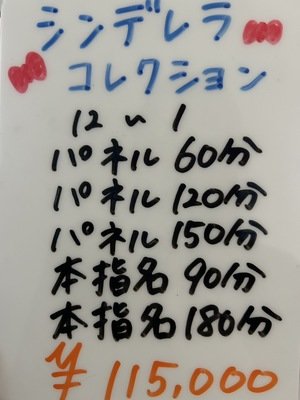 シンデレラ
コレクション
12～1
パネル 60分
パネル 120分
パネル 150分
本指名 90分
本指名 180分
¥ 115,000